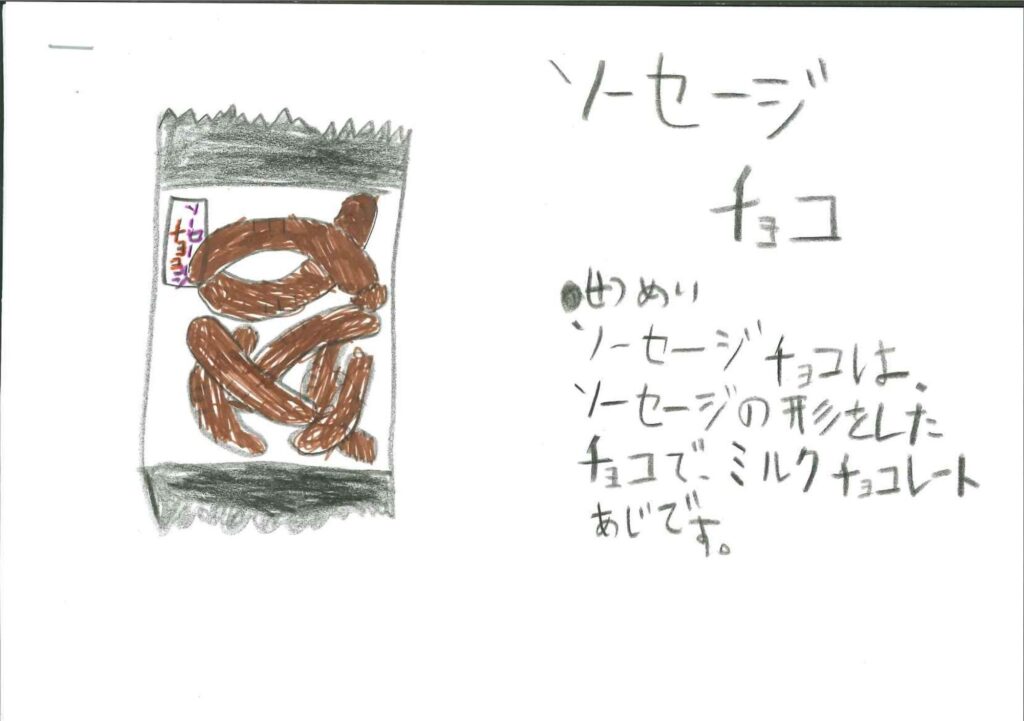 ソーセージ
チョコ
●せつめい
ソーセージチョコは、
ソーセージの形をした
チョコで、ミルクチョコレート
あじです。